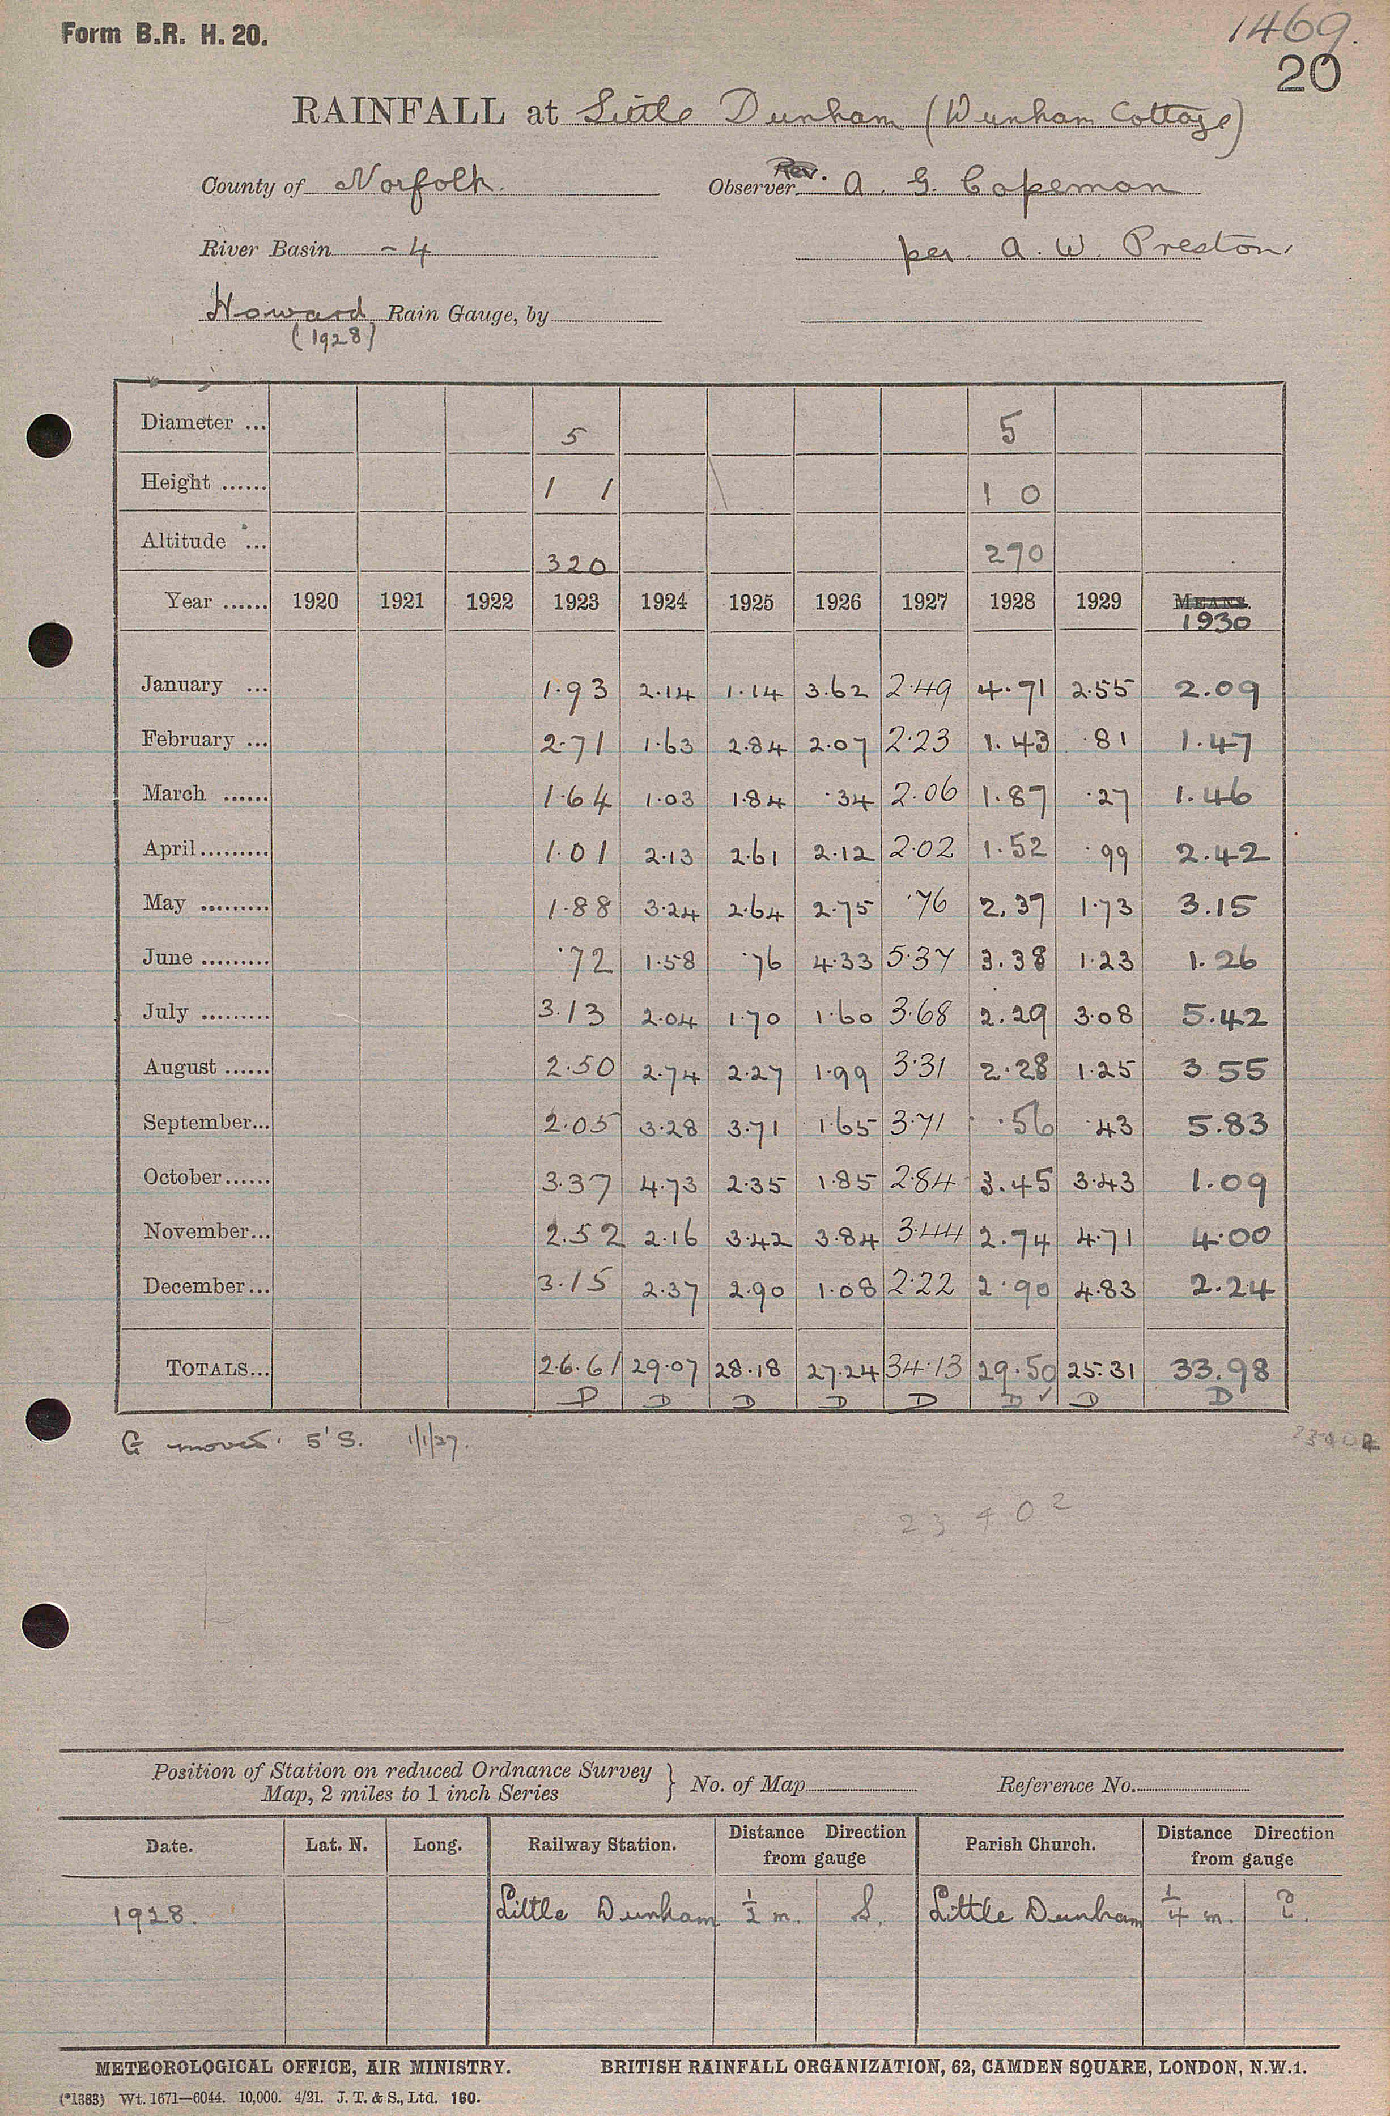 Form B.R. H. 20.
1469.
20
RAINFALL at Little Dunham (Dunham Cottage)
County of Norfolk. Observer, Rev. A. G. Copeman
River Basin - 4 per. A. W. Preston.
Howard Rain Gauge, by
(1928)
Diameter ... 5 5
Height ...... 1 1 1 0
Altitude ... 320 270
Year ...... 1920 1921 1922 1923 1924 1925 1926 1927 1928 1929 MEANS. 1930
January ... 1.93 2.14 1.14 3.62 2.49 4.71 2.55 2.09
February ... 2.71 1.63 2.84 2.07 2.23 1.43 .81 1.47
March ...... 1.64 1.03 1.84 .34 2.06 1.87 .27 1.46
April ......... 1.01 2.13 2.61 2.12 2.02 1.52 .99 2.42
May ......... 1.88 3.24 2.64 2.75 .76 2.37 1.73 3.15
June ......... .72 1.58 .76 4.33 5.37 3.38 1.23 1.26
July ......... 3.13 2.04 1.70 1.60 3.68 2.29 3.08 5.42
August ...... 2.50 2.74 2.27 1.99 3.31 2.28 1.25 3.55
September... 2.05 3.28 3.71 1.65 3.71 .56 .43 5.83
October...... 3.37 4.73 2.35 1.85 2.84 3.45 3.43 1.09
November... 2.52 2.16 3.42 3.84 3.44 2.74 4.71 4.00
December... 3.15 2.37 2.90 1.08 2.22 2.90 4.83 2.24
TOTALS... 26.61 29.07 28.18 27.24 34.13 29.50 25.31 33.98
D D D D D D ✓ D D
G moved 5' S. 1/1/27.
23402
23402
Position of Station on reduced Ordnance Survey
Map, 2 miles to 1 inch Series } No. of Map Reference No.
Date. Lat. N. Long. Railway Station. Distance Direction from gauge Parish Church. Distance Direction from gauge
1928. Little Dunham 1/2 m. S. Little Dunham 1/4 m.
METEOROLOGICAL OFFICE, AIR MINISTRY. BRITISH RAINFALL ORGANIZATION, 62, CAMDEN SQUARE, LONDON, N.W.1.
(*1383) Wt. 1671—6044. 10,000. 4/21. J. T. & S., Ltd. 160.